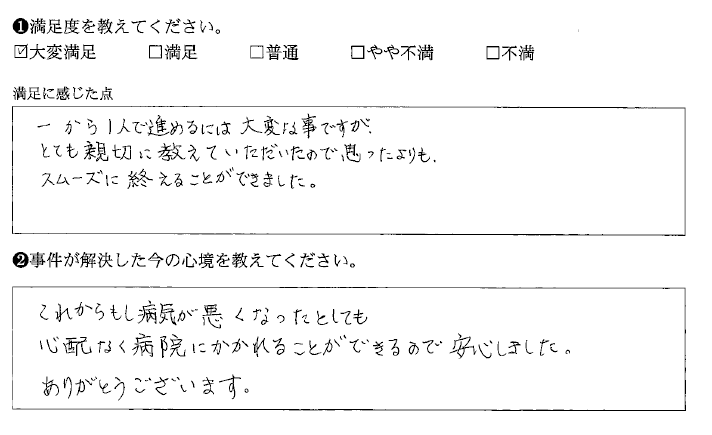 ❶満足度を教えてください。
☑大変満足 □満足 □普通 □やや不満 □不満
満足に感じた点
一から1人で進めるには大変な事ですが、
とても親切に教えていただいたので思ったよりも、
スムーズに終えることができました。
❷事件が解決した今の心境を教えてください。
これからもし病気が悪くなったとしても
心配なく病院にかかれることができるので安心しました。
ありがとうございます。